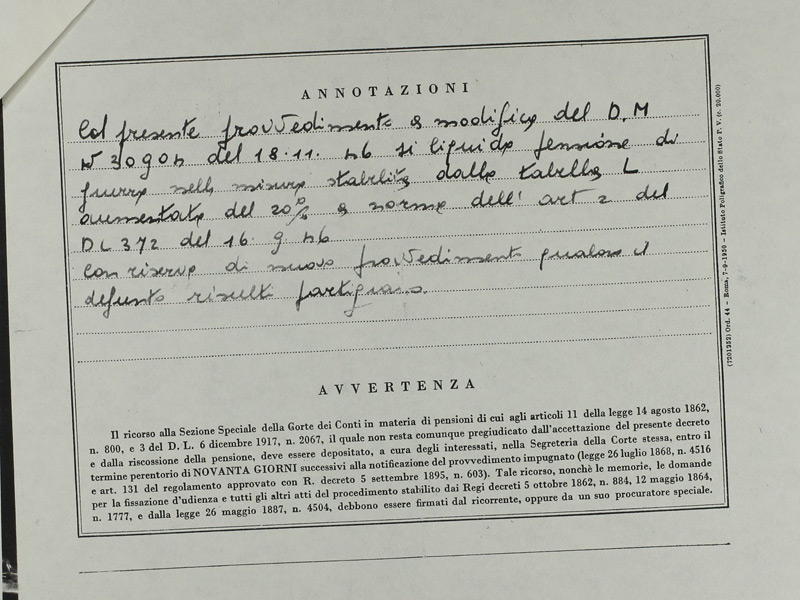 ANNOTAZIONI
Col presente provvedimento a modifica del D.M
N° 30904 del 18.11.46 si liquida pensione di
guerra nella misura stabilita dalla tabella L
aumentata del 20% a norma dell' art 2 del
DL 372 del 16 9 46
Con riserva di nuovo provvedimento qualora il
defunto risulti partigiano.
AVVERTENZA
Il ricorso alla Sezione Speciale della Gorte dei Conti in materia di pensioni di cui agli articoli 11 della legge 14 agosto 1862,
n. 800, e 3 del D. L. 6 dicembre 1917, n. 2067, il quale non resta comunque pregiudicato dall'accettazione del presente decreto
e dalla riscossione della pensione, deve essere depositato, a cura degli interessati, nella Segreteria della Corte stessa, entro il
termine perentorio di NOVANTA GIORNI successivi alla notificazione del provvedimento impugnato (legge 26 luglio 1868, n. 4516
e art. 131 del regolamento approvato con R. decreto 5 settembre 1895, n. 603). Tale ricorso, nonchè le memorie, le domande
per la fissazione d'udienza e tutti gli altri atti del procedimento stabilito dai Regi decreti 5 ottobre 1862, n. 884, 12 maggio 1864,
n. 1777, e dalla legge 26 maggio 1887, n. 4504, debbono essere firmati dal ricorrente, oppure da un suo procuratore speciale.
(7201252) Ord. 44 - Roma, 7-9-1950 - Istituto Poligrafico dello Stato P. V. (c. 20.000)